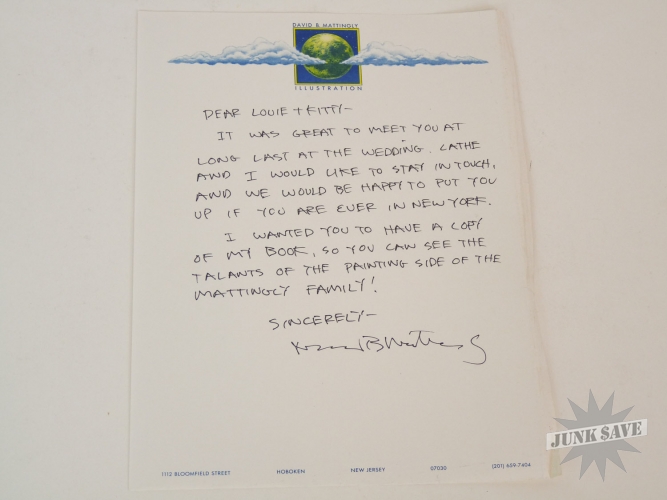 DAVID B. MATTINGLY
ILLUSTRATION
DEAR LOUIE + KITTY-
IT WAS GREAT TO MEET YOU AT
LONG LAST AT THE WEDDING. CATHE
AND I WOULD LIKE TO STAY IN TOUCH,
AND WE WOULD BE HAPPY TO PUT YOU
UP IF YOU ARE EVER IN NEW YORK.
I WANTED YOU TO HAVE A COPY
OF MY BOOK, SO YOU CAN SEE THE
TALANTS OF THE PAINTING SIDE OF THE
MATTINGLY FAMILY!
SINCERELY-
David B Mattingly
1112 BLOOMFIELD STREET HOBOKEN NEW JERSEY 07030 (201) 659-7404
JUNK SAVE